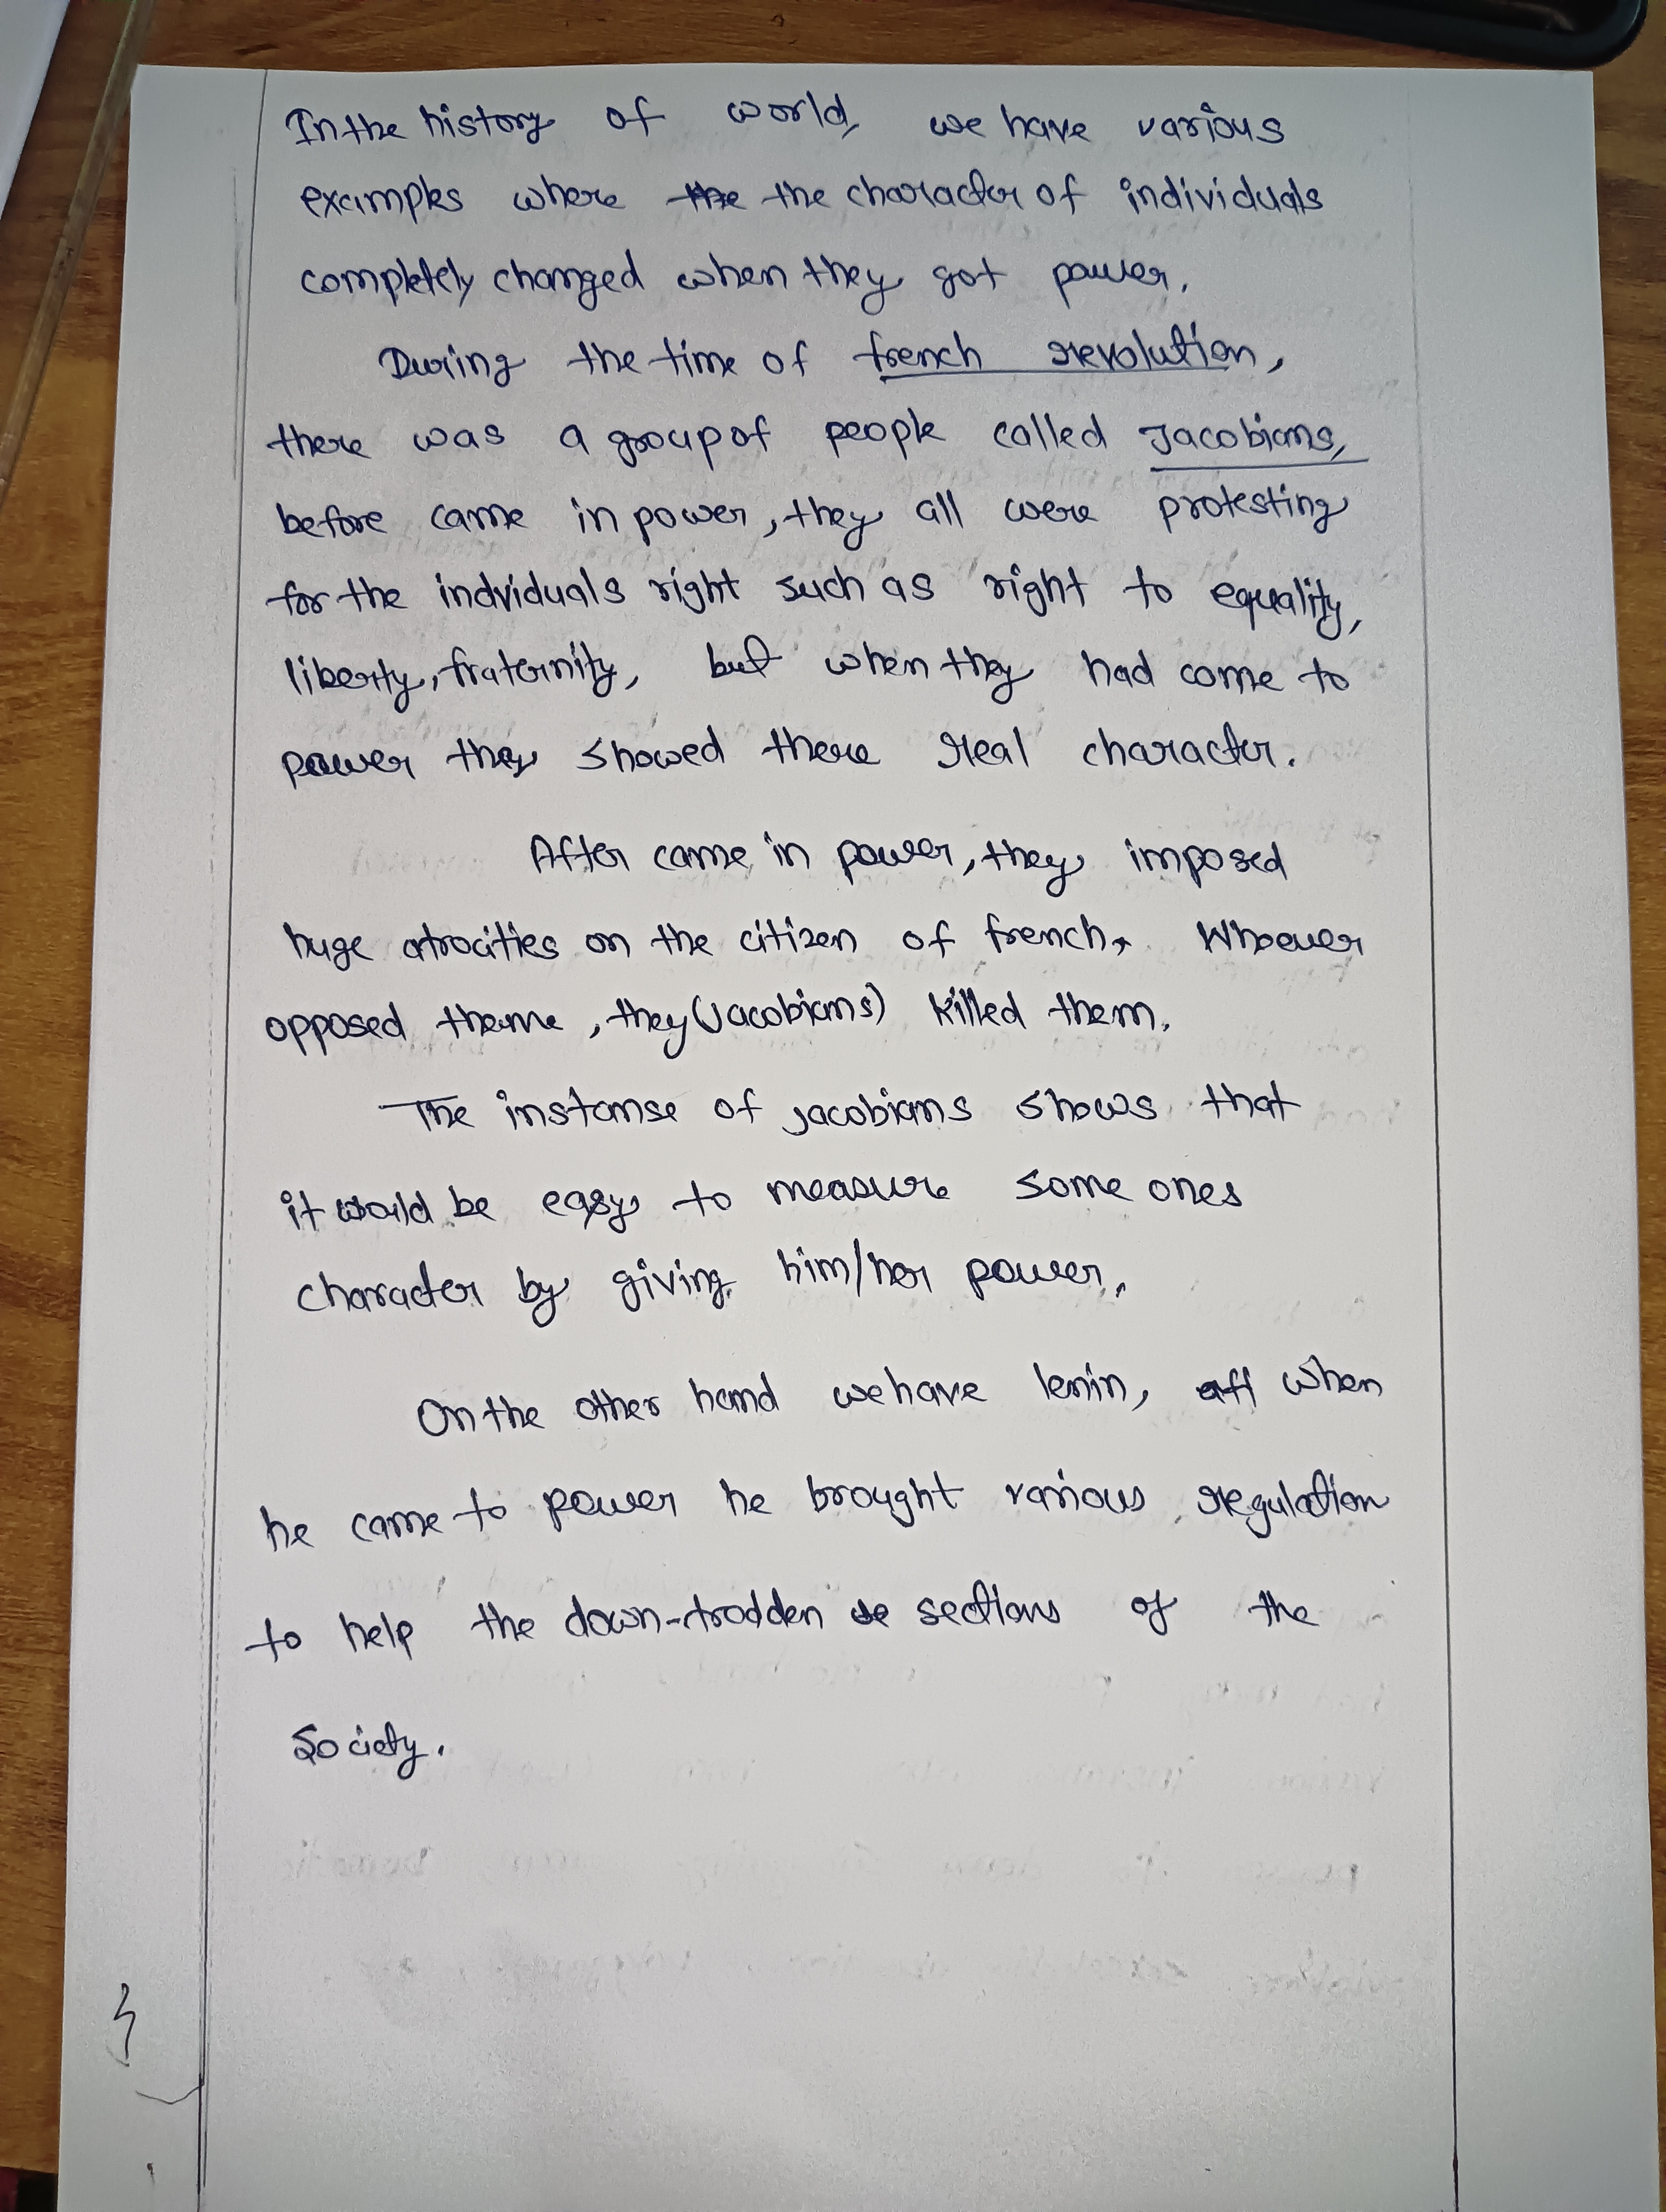 In the history of world, we have various
examples where the the character of individuals
completely changed when they got power.
During the time of french revolution,
there was a group of people called Jacobians,
before came in power, they all were protesting
for the indviduals right such as right to equality,
liberty, fraternity, but when they had come to
power they showed there real character.
After came in power, they imposed
huge atrocities on the citizen of french, Whoever
opposed theme, they (Jacobians) killed them.
The instanse of jacobians shows that
it would be easy to measure some ones
character by giving him/her power.
On the other hand we have lenin, aff when
he came to power he brought various regulation
to help the down-trodden se sections of the
Society.